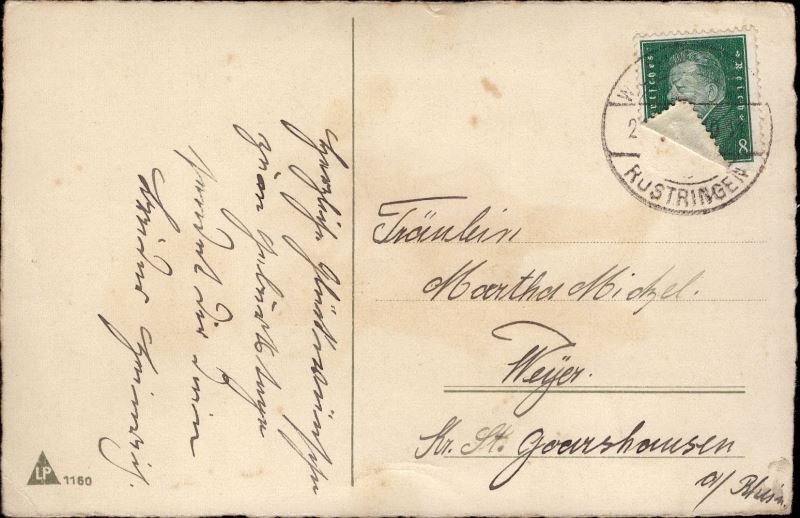 Herzliche Glückwünsche
zum Geburtstage
sendet dir dein
Heinrich.
Deutsches Reich
8
RÜSTRINGEN
Fräulein
Martha Michel.
Weyer.
Kr. St. Goarshausen
a/ Rhein.
LP 1160